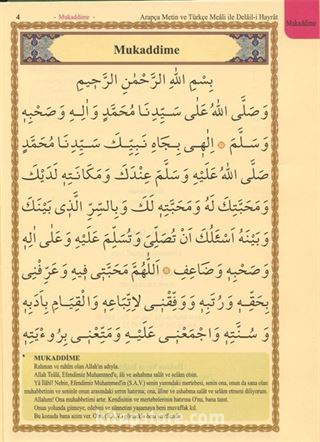 4 - Mukaddime - Arapça Metin ve Türkçe Meâli ile Delâil-i Hayrât
Mukaddime
Mukaddime
بِسْمِ اللّٰهِ الرَّحْمٰنِ الرَّحٖيمِ
وَ صَلَّى اللّٰهُ عَلٰى سَيِّدِنَا مُحَمَّدٍ وَ اٰلِهٖ وَ صَحْبِهٖ
وَ سَلَّمَ ۞ اِلٰهٖى بِجَاهِ نَبِيِّكَ سَيِّدِنَا مُحَمَّدٍ
صَلَّى اللّٰهُ عَلَيْهِ وَ سَلَّمَ عِنْدَكَ وَ مَكَانَتِهٖ لَدَيْكَ
وَ مَحَبَّتِكَ لَهُ وَ مَحَبَّتِهٖ لَكَ وَ بِالسِّرِّ الَّذٖى بَيْنَكَ
وَ بَيْنَهُ اَسْئَلُكَ اَنْ تُصَلِّىَ وَ تُسَلِّمَ عَلَيْهِ وَ عَلٰى اٰلِهٖ
وَ صَحْبِهٖ وَ ضَاعِفِ ۞ اَللّٰهُمَّ مَحَبَّتٖى فٖيهِ وَ عَرِّفْنٖى
بِحَقِّهٖ وَ رُتَبِهٖ وَ وَفِّقْنٖى لِاتِّبَاعِهٖ وَ الْقِيَامِ بِاَدَبِهٖ
وَ سُنَّتِهٖ وَ اجْمَعْنٖى عَلَيْهِ وَ مَتِّعْنٖى بِرُوءْيَتِهٖ
MUKADDİME
Rahman ve rahîm olan Allah'ın adıyla.
Allah Teâlâ, Efendimiz Muhammed'e, âli ve ashabına salât ve selâm etsin.
Yâ İlâhî! Nebin, Efendimiz Muhammed'in (S.A.V.) senin yanındaki mertebesi, senin ona, onun da sana olan
muhabbetinin ve seninle onun arasındaki sırrın hatırına; ona, âline ve ashabına salât ve selâm etmeni diliyorum.
Allahım! Ona muhabbetimi artır. Kendisinin ve mertebelerinin hatırına O'nu, bana tanıt.
Onun yolunda gitmeye, edebini ve sünnetini yaşamaya beni muvaffak kıl.
Bu konuda bana azim ver.